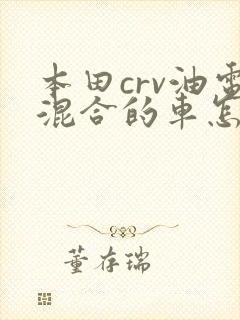 本田crv油電
混合的車怎
董存瑞